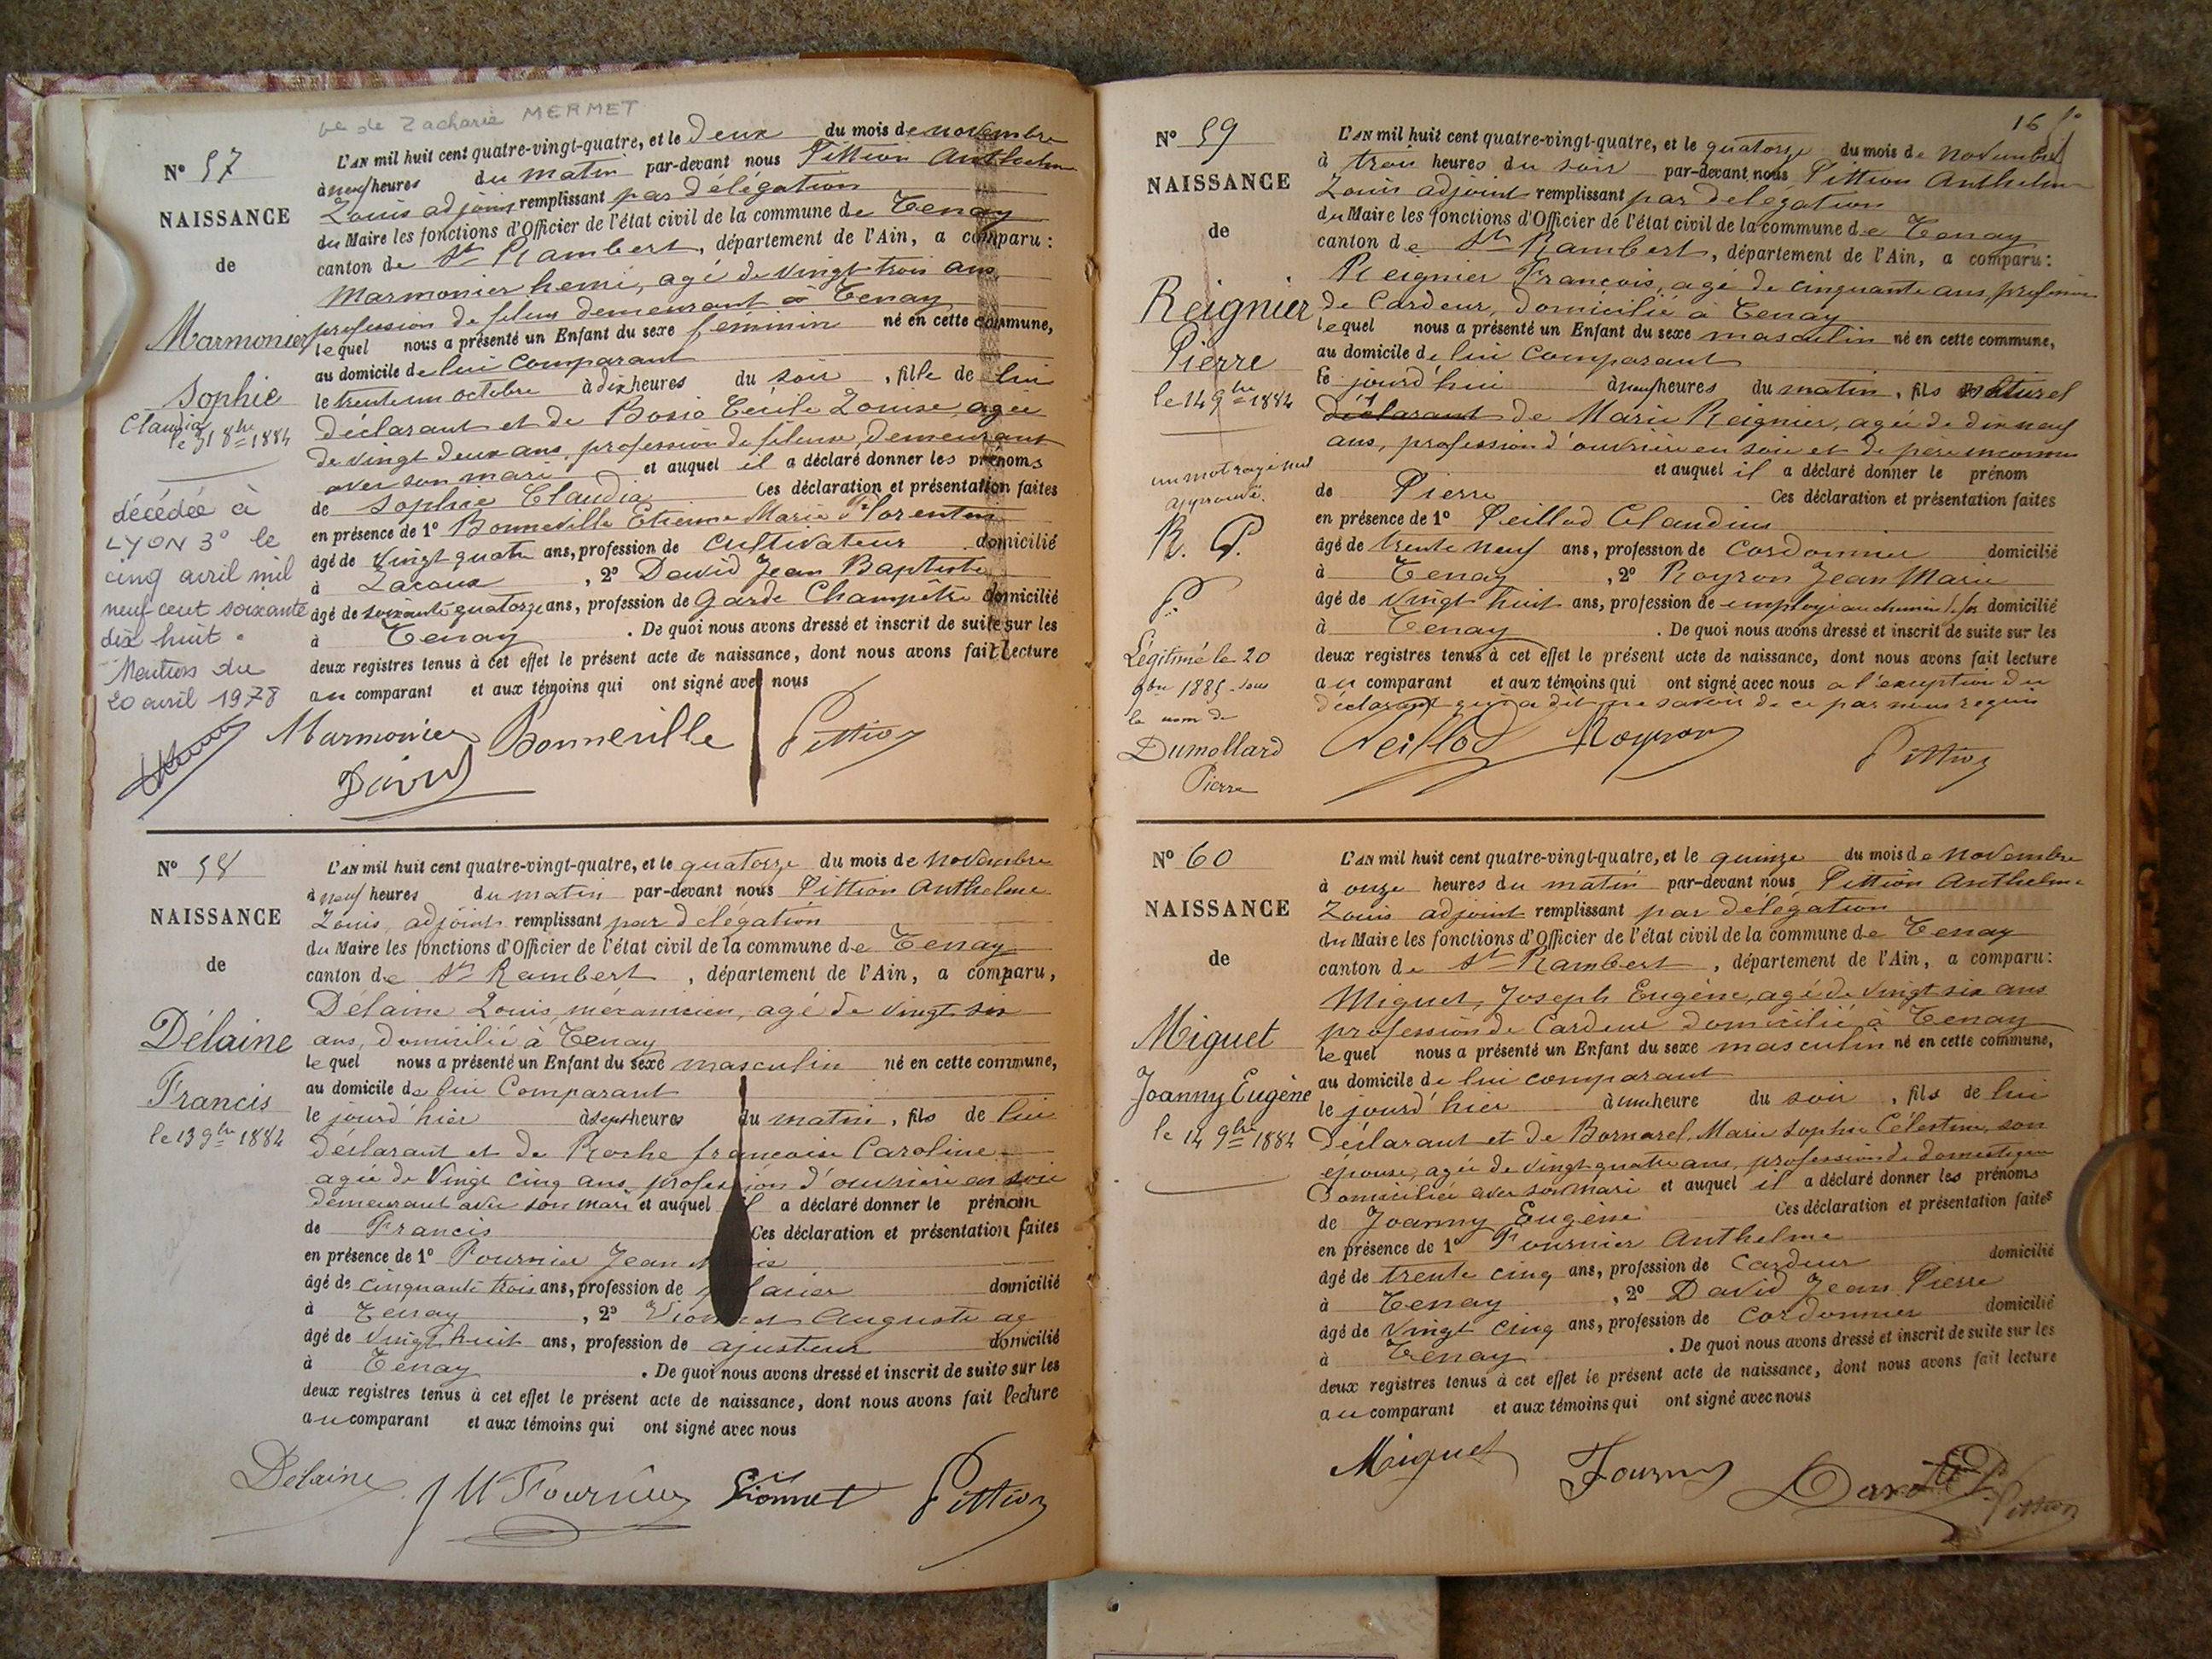 Vve de Zacharie MERMET
N° 57
NAISSANCE
de
Marmonier
Sophie
Claudia
le 31 8bre 1884
décédée à
LYON 3° le
cinq avril mil
neuf cent soixante
dix huit.
Mention du
20 avril 1978
L'AN mil huit cent quatre-vingt-quatre, et le deux du mois de novembre
à neuf heures du matin par-devant nous Pittion Anthelme
Louis adjoint remplissant par délégation
du Maire les fonctions d'Officier de l'état civil de la commune de Tenay
canton de St Rambert, département de l'Ain, a comparu :
Marmonier henri, agé de vingt trois ans
profession de fileur demeurant à Tenay
lequel nous a présenté un Enfant du sexe féminin né en cette commune,
au domicile de lui comparant
le trente un octobre à dix heures du soir, fille de lui
déclarant et de Bosio Cécile Louise, agée
de vingt deux ans, profession de fileuse, demeurant
avec son mari et auquel il a déclaré donner les prénoms
de Sophie Claudia Ces déclaration et présentation faites
en présence de 1° Bonneville Etienne Marie Florentin
âgé de vingt quatre ans, profession de cultivateur domicilié
à Lacoux, 2° David Jean Baptiste
âgé de soixante quatorze ans, profession de Garde Champêtre domicilié
à Tenay. De quoi nous avons dressé et inscrit de suite sur les
deux registres tenus à cet effet le présent acte de naissance, dont nous avons fait lecture
au comparant et aux témoins qui ont signé avec nous
Marmonier Bonneville Pittion
David
N° 58
NAISSANCE
de
Délaine
Francis
le 13 9bre 1884
L'AN mil huit cent quatre-vingt-quatre, et le quatorze du mois de novembre
à neuf heures du matin par-devant nous Pittion Anthelme
Louis, adjoint remplissant par délégation
du Maire les fonctions d'Officier de l'état civil de la commune de Tenay
canton de St Rambert, département de l'Ain, a comparu,
Délaine Louis, mécanicien, agé de vingt six
ans, domicilié à Tenay
lequel nous a présenté un Enfant du sexe masculin né en cette commune,
au domicile de lui Comparant
le jourd'hier à sept heures du matin, fils de lui
déclarant et de Roche francoise Caroline
agée de Vingt cinq ans, profession d'ouvrière en soie
demeurant avec son mari et auquel il a déclaré donner le prénom
de Francis Ces déclaration et présentation faites
en présence de 1° Fournier Jean
âgé de cinquante trois ans, profession de domicilié
à Tenay, 2° Vionnet Auguste ag
âgé de Vingt huit ans, profession de ajusteur domicilié
à Tenay. De quoi nous avons dressé et inscrit de suite sur les
deux registres tenus à cet effet le présent acte de naissance, dont nous avons fait lecture
au comparant et aux témoins qui ont signé avec nous
Délaine JM Fournier Vionnet Pittion
16
N° 59
NAISSANCE
de
Reignier
Pierre
le 14 9bre 1884
un mot rayé nul
approuvé.
R. P.
P.
Légitimé le 20
9bre 1885 sous
le nom de
Dumollard
Pierre
L'AN mil huit cent quatre-vingt-quatre, et le quatorze du mois de Novembre
à trois heures du soir par-devant nous Pittion Anthelme
Louis adjoint remplissant par délégation
du Maire les fonctions d'Officier de l'état civil de la commune de Tenay
canton de St Rambert, département de l'Ain, a comparu :
Reignier François, agé de cinquante ans, profession
de Cardeur, domicilié à Tenay
lequel nous a présenté un Enfant du sexe masculin né en cette commune,
au domicile de lui Comparant
le jourd'hui à neuf heures du matin, fils naturel
déclarant de Marie Reignier, agée de dix neuf
ans, profession d'ouvrière en soie et de père inconnu
et auquel il a déclaré donner le prénom
de Pierre Ces déclaration et présentation faites
en présence de 1° Peillod Claudius
âgé de trente neuf ans, profession de cordonnier domicilié
à Tenay, 2° Royron Jean Marie
âgé de Vingt huit ans, profession de employé au chemin de fer domicilié
à Tenay. De quoi nous avons dressé et inscrit de suite sur les
deux registres tenus à cet effet le présent acte de naissance, dont nous avons fait lecture
au comparant et aux témoins qui ont signé avec nous a l'exception du
déclarant qui a dit ne savoir de ce par nous requis
Peillod Royron Pittion
N° 60
NAISSANCE
de
Miguet
Joanny Eugène
le 14 9bre 1884
L'AN mil huit cent quatre-vingt-quatre, et le quinze du mois de novembre
à onze heures du matin par-devant nous Pittion Anthelme
Louis adjoint remplissant par délégation
du Maire les fonctions d'Officier de l'état civil de la commune de Tenay
canton de St Rambert, département de l'Ain, a comparu :
Miguet, Joseph Eugène, agé de vingt six ans
profession de Cardeur domicilié à Tenay
lequel nous a présenté un Enfant du sexe masculin né en cette commune,
au domicile de lui comparant
le jourd'hier à une heure du soir, fils de lui
Déclarant et de Bornarel, Marie Sophie Célestine, son
épouse, agée de vingt quatre ans, profession de domestique
Domiciliée avec son mari et auquel il a déclaré donner les prénoms
de Joanny Eugène Ces déclaration et présentation faites
en présence de 1° Fournier Anthelme
âgé de trente cinq ans, profession de Cardeur domicilié
à Tenay, 2° David Jean Pierre
âgé de Vingt cinq ans, profession de cordonnier domicilié
à Tenay. De quoi nous avons dressé et inscrit de suite sur les
deux registres tenus à cet effet le présent acte de naissance, dont nous avons fait lecture
au comparant et aux témoins qui ont signé avec nous
Miguet Fournier David Pittion